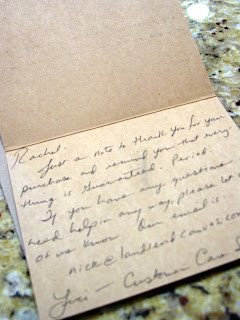 Rachel.
Just a note to thank you for your
purchase and remind you that every
thing is Guaranteed. Period.
If you have any questions
need help in any way, please let
of us know. Our email is:
nick@landsendcanvas.co
– Customer Care